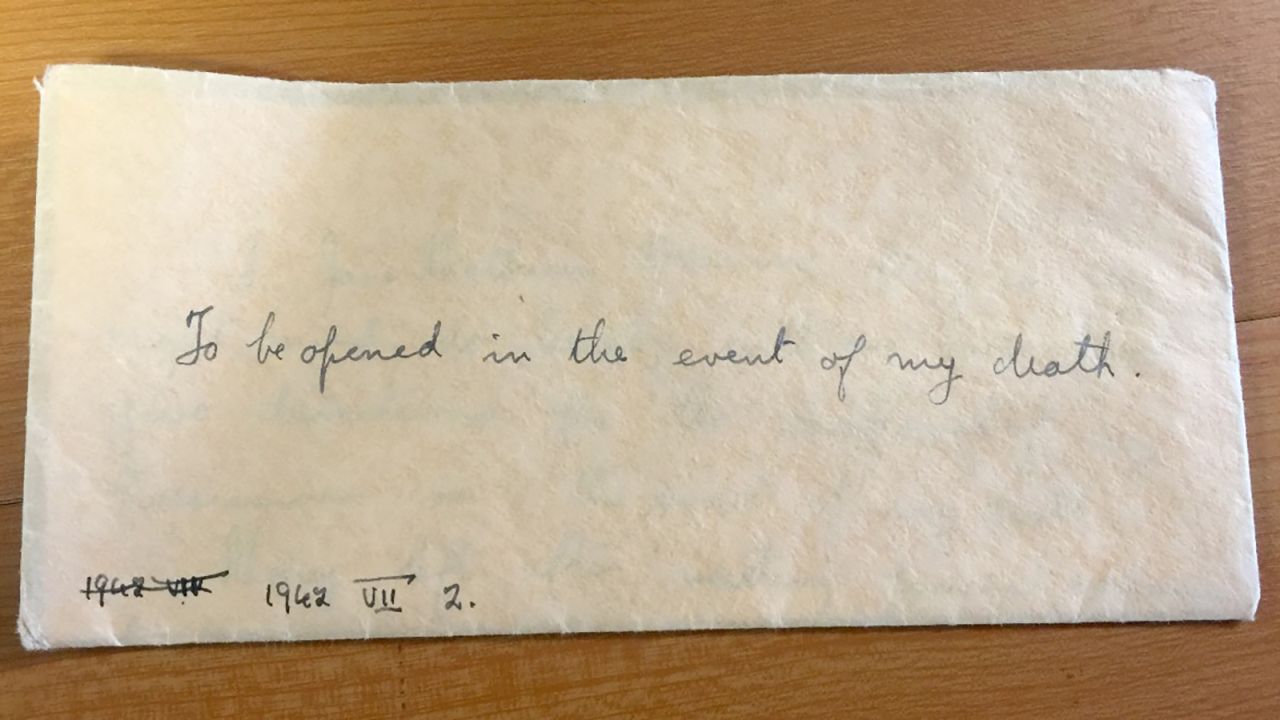 To be opened in the event of my death.
1942 VII 2.